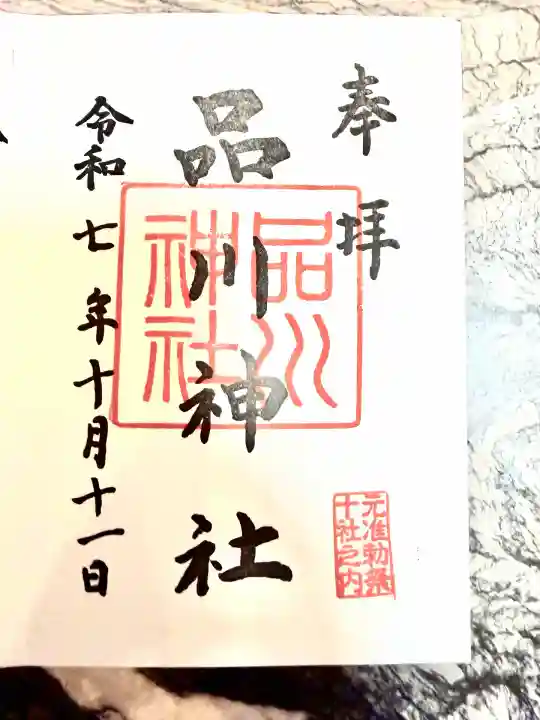 奉拝
品川神社
品川
神社
令和七年十月十一日
元准勅祭
十社之内